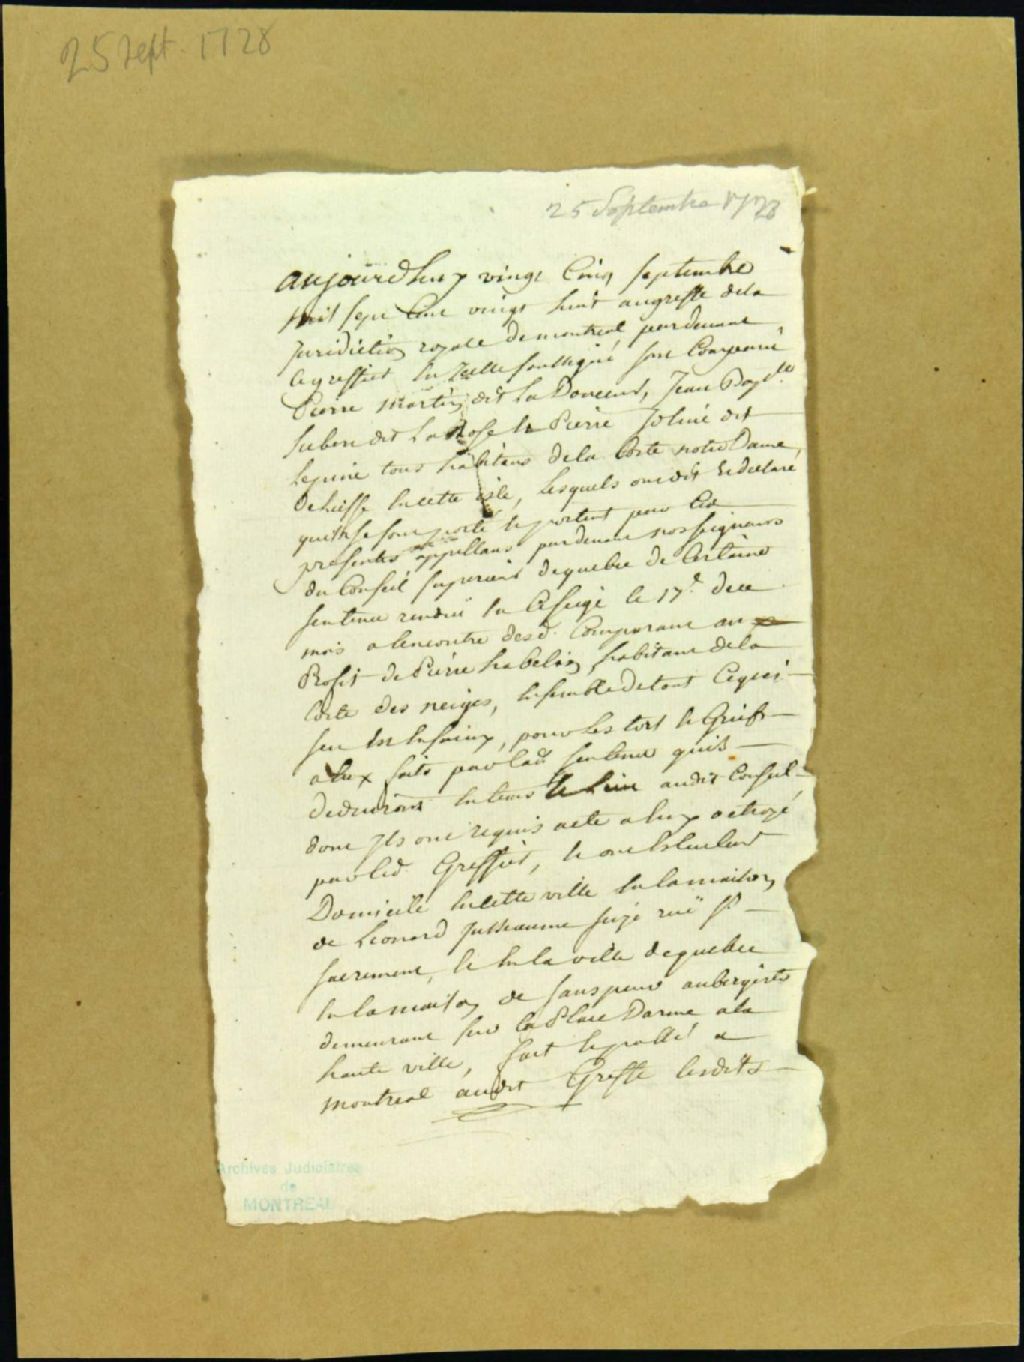 25 Sept. 1728
25 Septembre 1728
aujourdhuy vingt Cinq septembre
mil sept Cent vingt huit au greffe dela
Juridiction royale demontreal pardevant
Le greffier En Icelle soussigné sont Comparus
Pierre Martin dit La Douceur, Jean Bapte
dit La Rose Et Pierre dit
Lepine tous habitans dela Coste notre Dame
En cette isle, Lesquels ont dit Et declaré
quils se sont porté Et portent pour Ces
presentes appellans pardevant nosseigneurs
du Conseil superieur dequebec de Certaine
sentence rendue En Ce siege le 17e. de ce
mois a lencontre desd. Comparans au
Profit de Pierre habitant dela
Coste des neiges, Ensemble detout Cequi
sen Est Ensuivy, pour Les tort Et Griefs
a Eux faits par Lad. sentence quils
Deduiront En tems Et Lieu audit Conseil
dont Ils ont requis acte a Eux octroyé
par Led. Greffier, Et ont Esleu Leur
Domicile En cette ville En la maison
de Leonard Jusseaume size rue St
sacrement, Et En la ville dequebec
En la maison de sanspeur aubergiste
demeurant sur La Place Darme a la
haute ville, fait Et passé a
Montreal audit Greffe Lesdits
Archives Judiciaires
de
MONTREAL